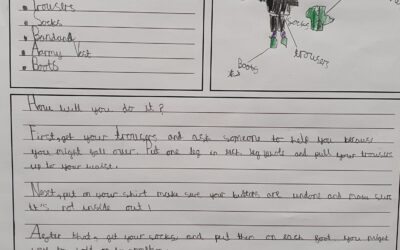 Trousers
Socks
Bandana
Army Vest
Boots
Socks
trousers
Boots
How will you do it?
First, get your trousers and ask someone to help you because
you might fall over. Put one leg in each leg and pull your trousers
up to your waist.
Next, put on your shirt make sure your buttons are undone and make sure
it's not inside out!
After that, get your socks and put them on each foot. you might